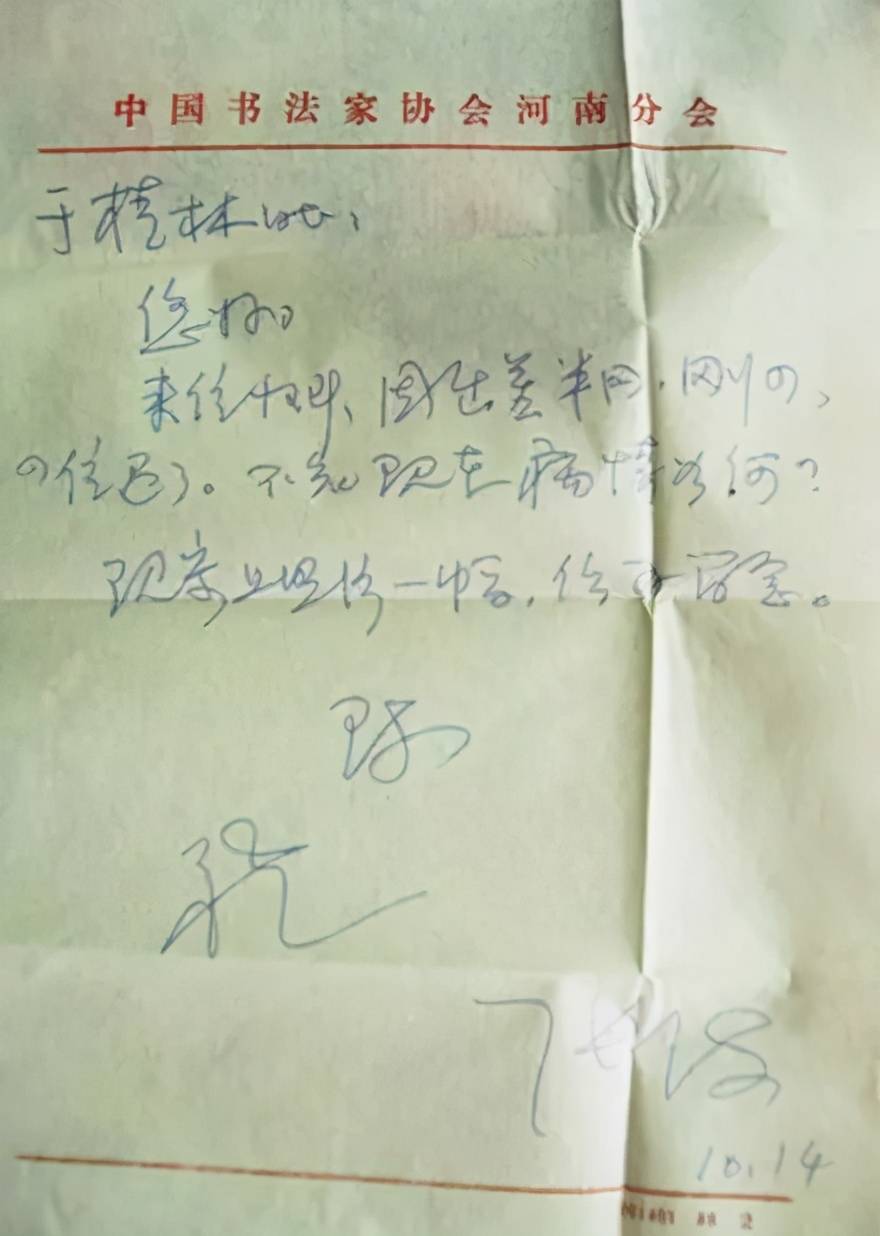 中国书法家协会河南分会
于桂林同志：
您好。
来信收到、因出差半月．刚回、
回信迟了。不知现在病情如何？
现寄上拙作一幅，
即
祝
10.14